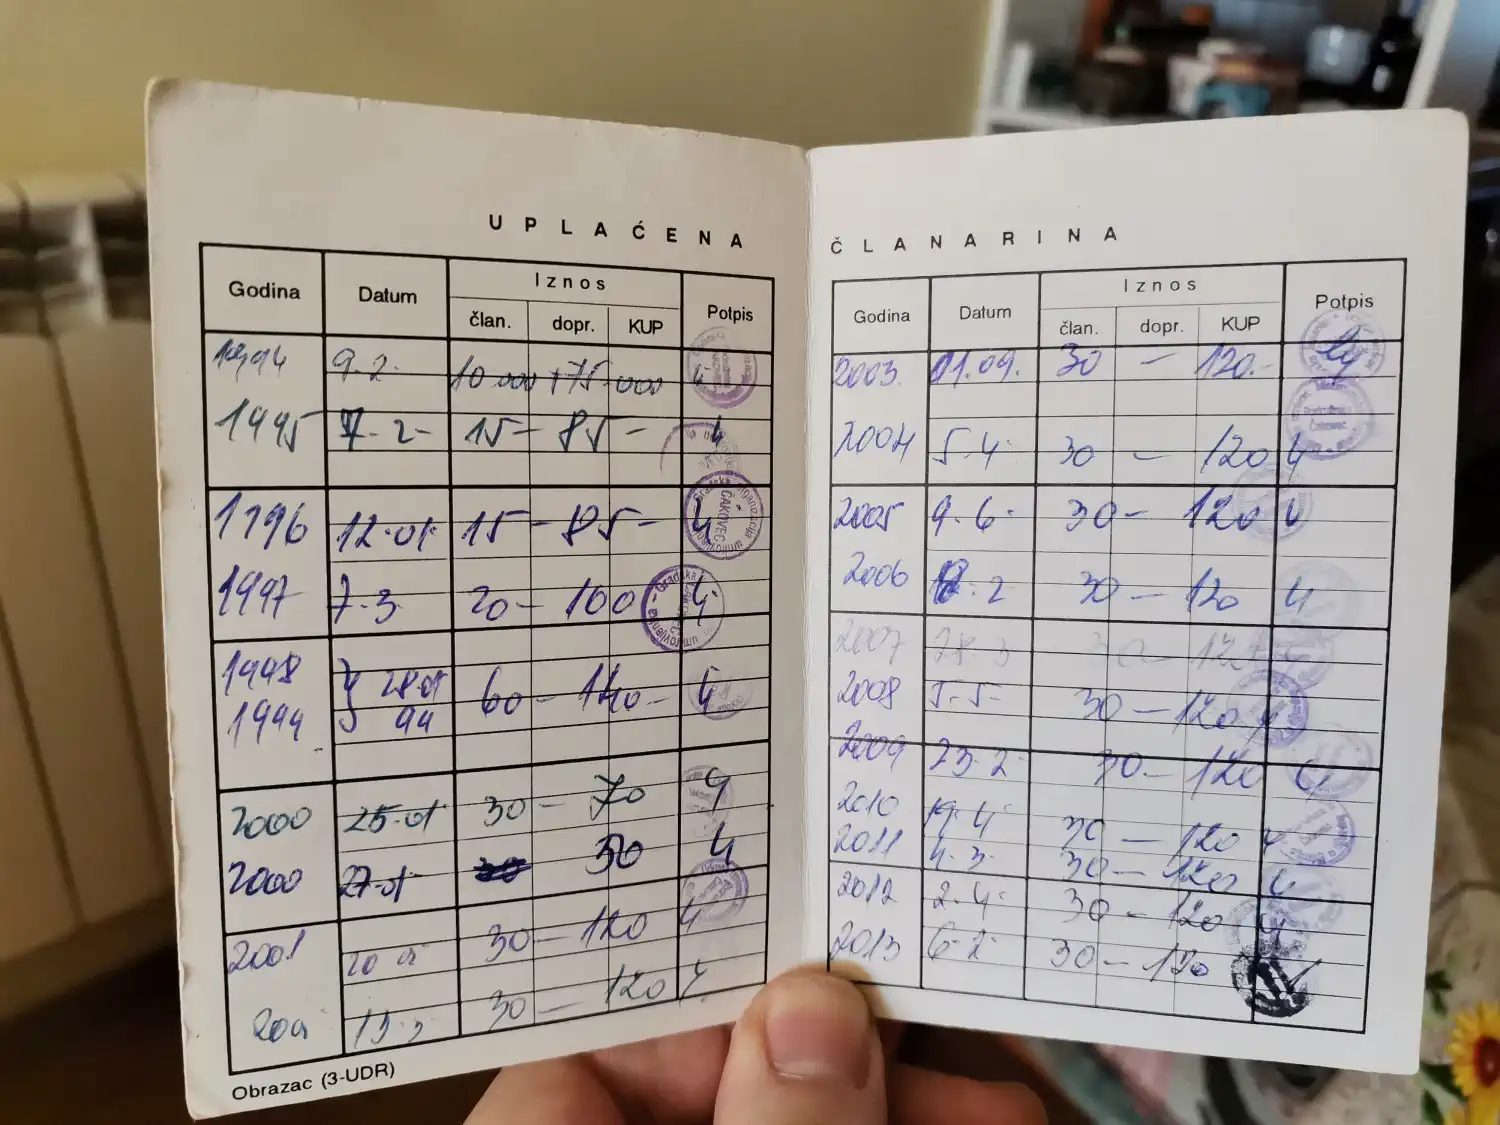 UPLAĆENA
Godina Datum Iznos Potpis
član. dopr. KUP
1994 9.2. 10.000 + 75.000
1995 7.2- 15- 85-
1996 12.01 15- 85-
1997 7.3 20- 100
1998 28.01 60- 140-
1999 99
2000 25.01 30- 70
2000 27.01 50
2001 20 30- 120
13. 30- 120
Obrazac (3-UDR)
ČLANARINA
Godina Datum Iznos Potpis
član. dopr. KUP
2003. 01.09. 30 - 120.-
2004 5.4. 30 - 120
2005 9.6. 30- 120
2006 .2 30- 120
2007 28.3 30- 120
2008 5.5- 30- 120
2009 23.2- 30- 120
2010 19.4- 30- 120
2011 4.3. 30- 120
2012 2.4. 30- 120
2013 6.2 30- 120